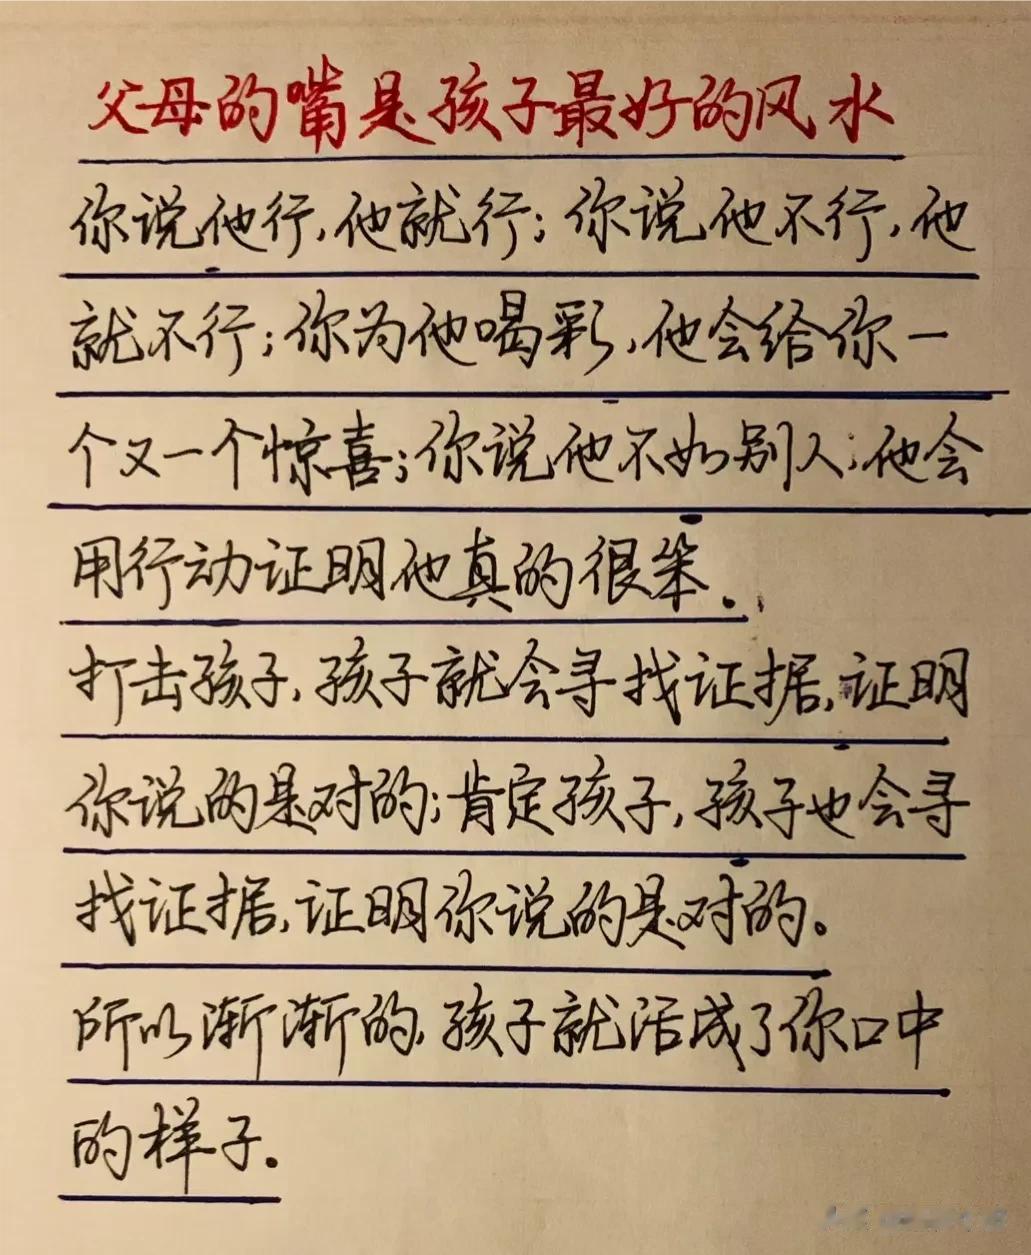 父母的嘴是孩子最好的风水
你说他行,他就行;你说他不行,他
就不行;你为他喝彩,他会给你一
个又一个惊喜;你说他不如别人;他会
用行动证明他真的很笨.
打击孩子,孩子就会寻找证据,证明
你说的是对的;肯定孩子,孩子也会寻
找证据,证明你说的是对的。
所以渐渐的,孩子就活成了你口中
的样子.